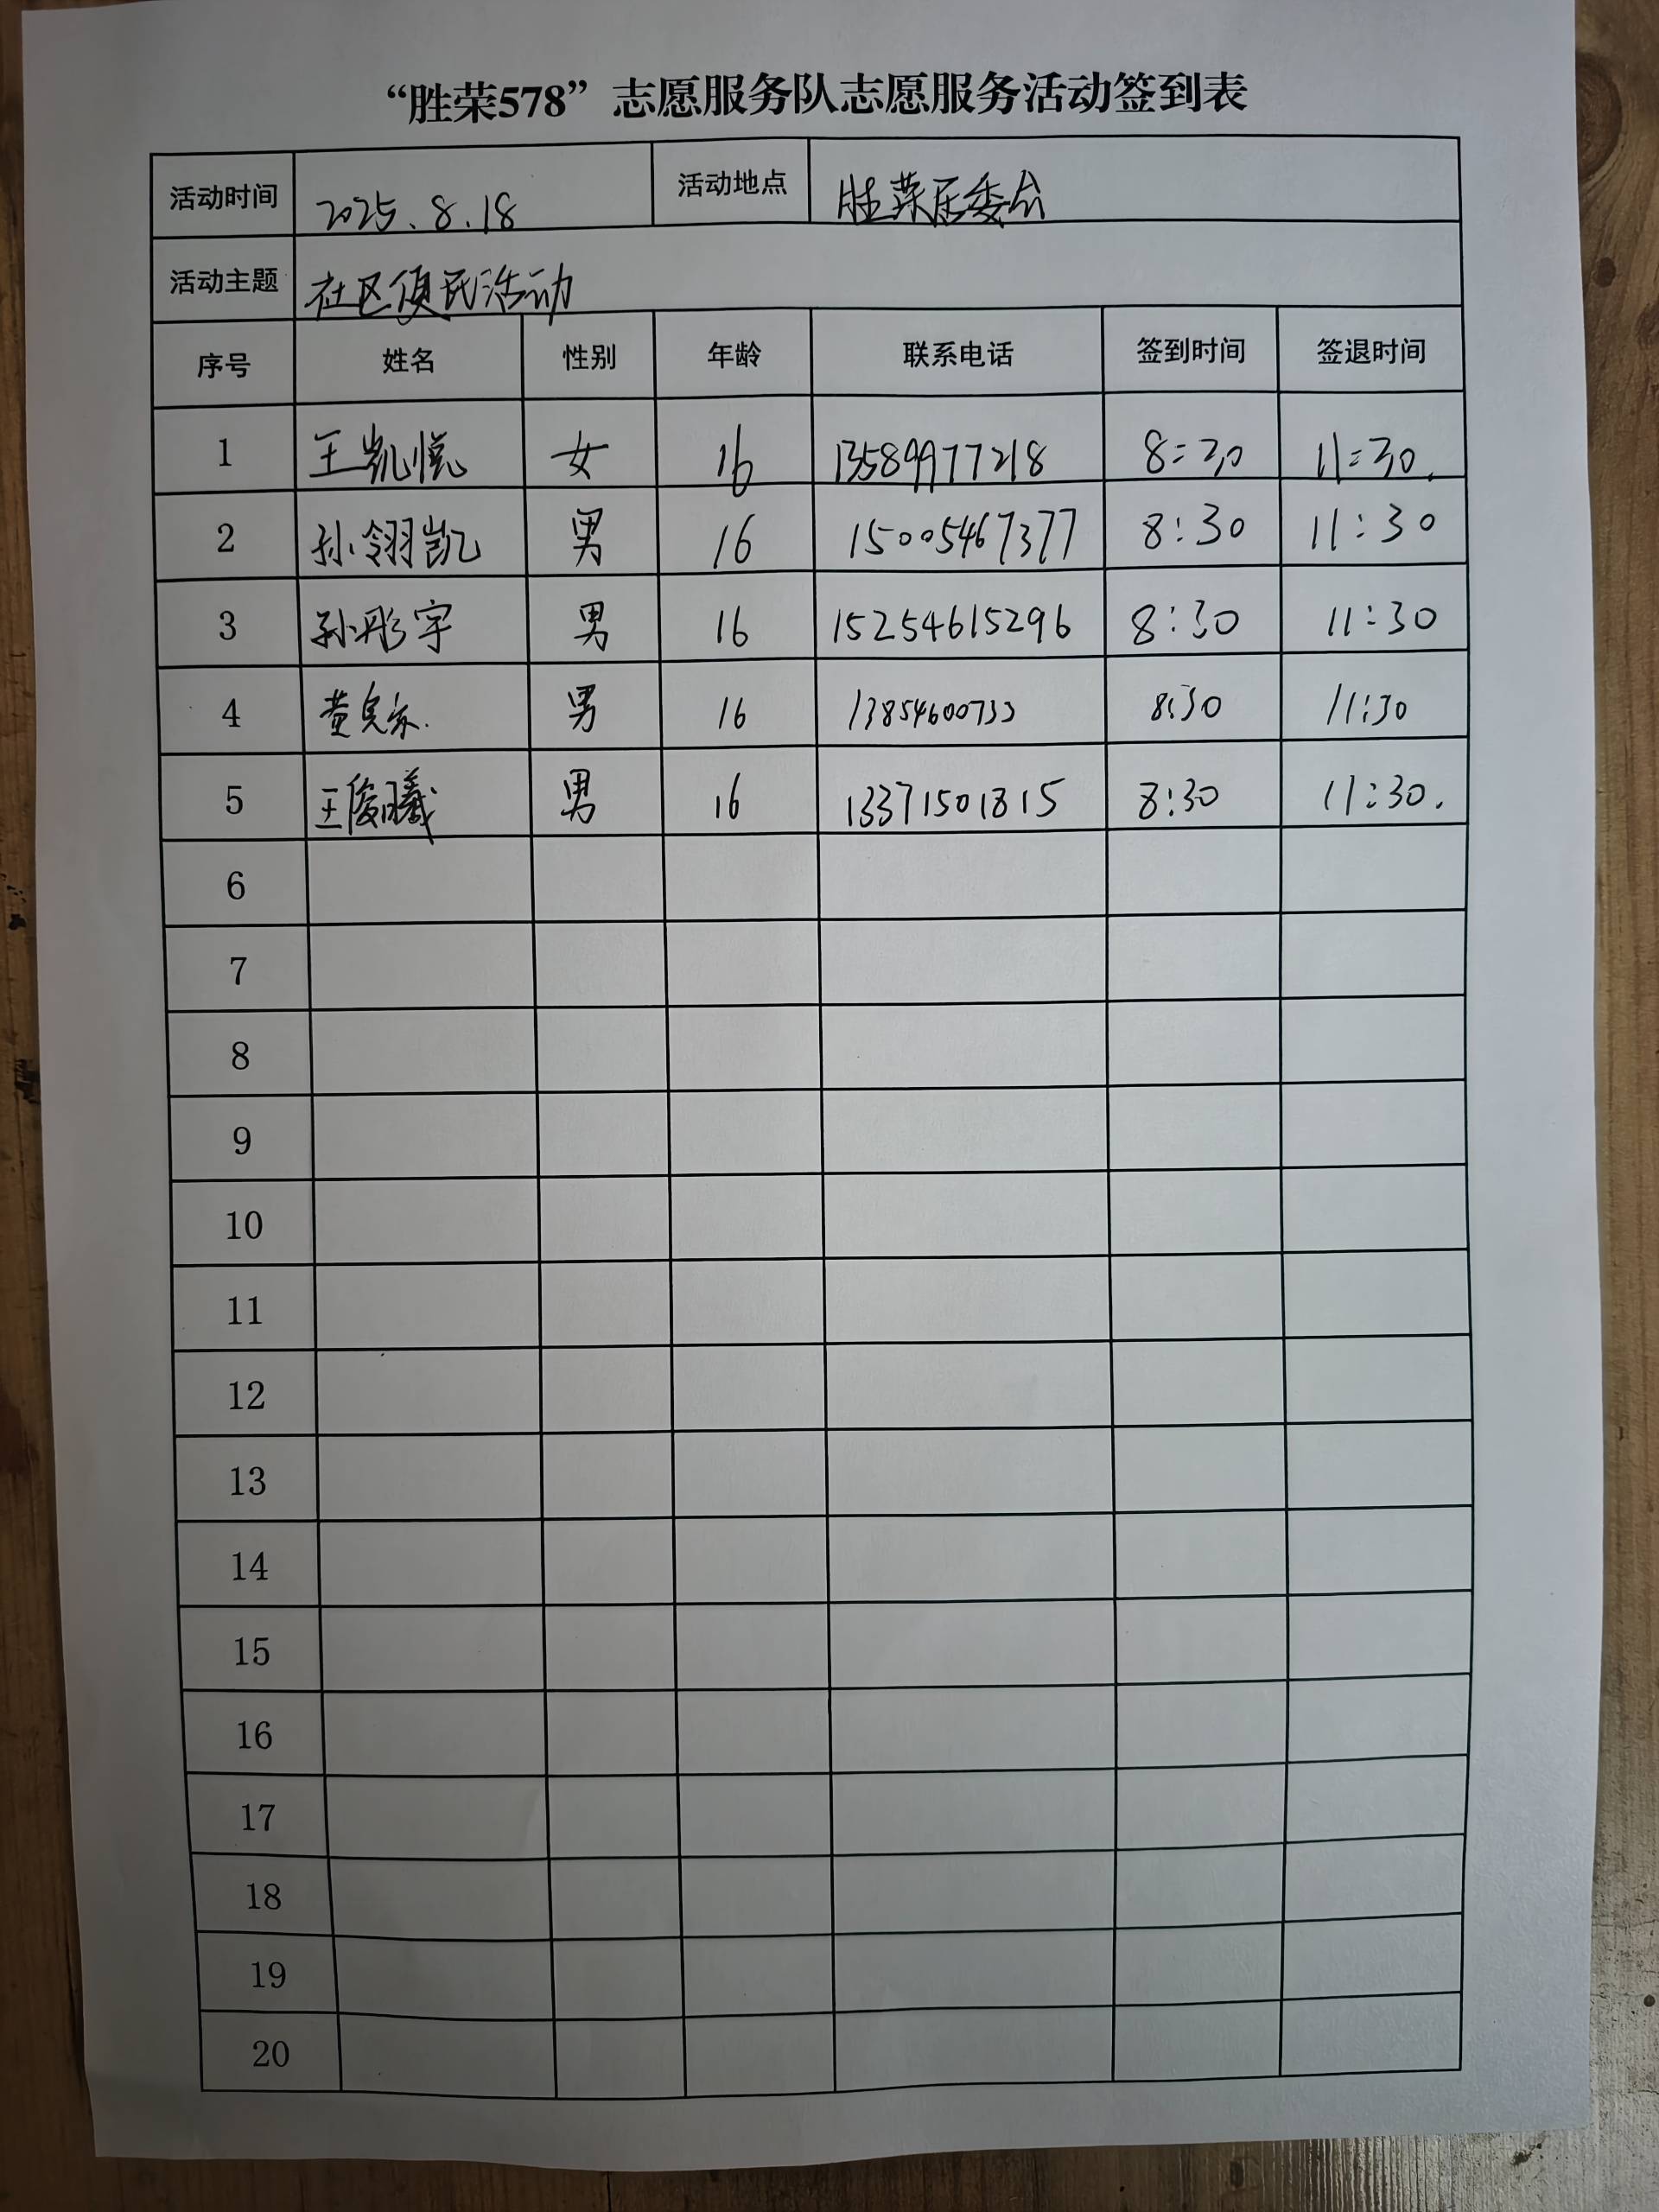 “胜荣578”志愿服务队志愿服务活动签到表
活动时间 2025.8.18 活动地点 胜荣居委会
活动主题 社区便民活动
序号 姓名 性别 年龄 联系电话 签到时间 签退时间
1 王凯悦 女 16 13589977218 8:30 11:30.
2 孙翎凯 男 16 15005467377 8:30 11:30
3 孙彤宇 男 16 15254615296 8:30 11:30
4 黄 男 16 13854600733 8:30 11:30
5 王俊曦 男 16 13371501815 8:30 11:30.
6
7
8
9
10
11
12
13
14
15
16
17
18
19
20